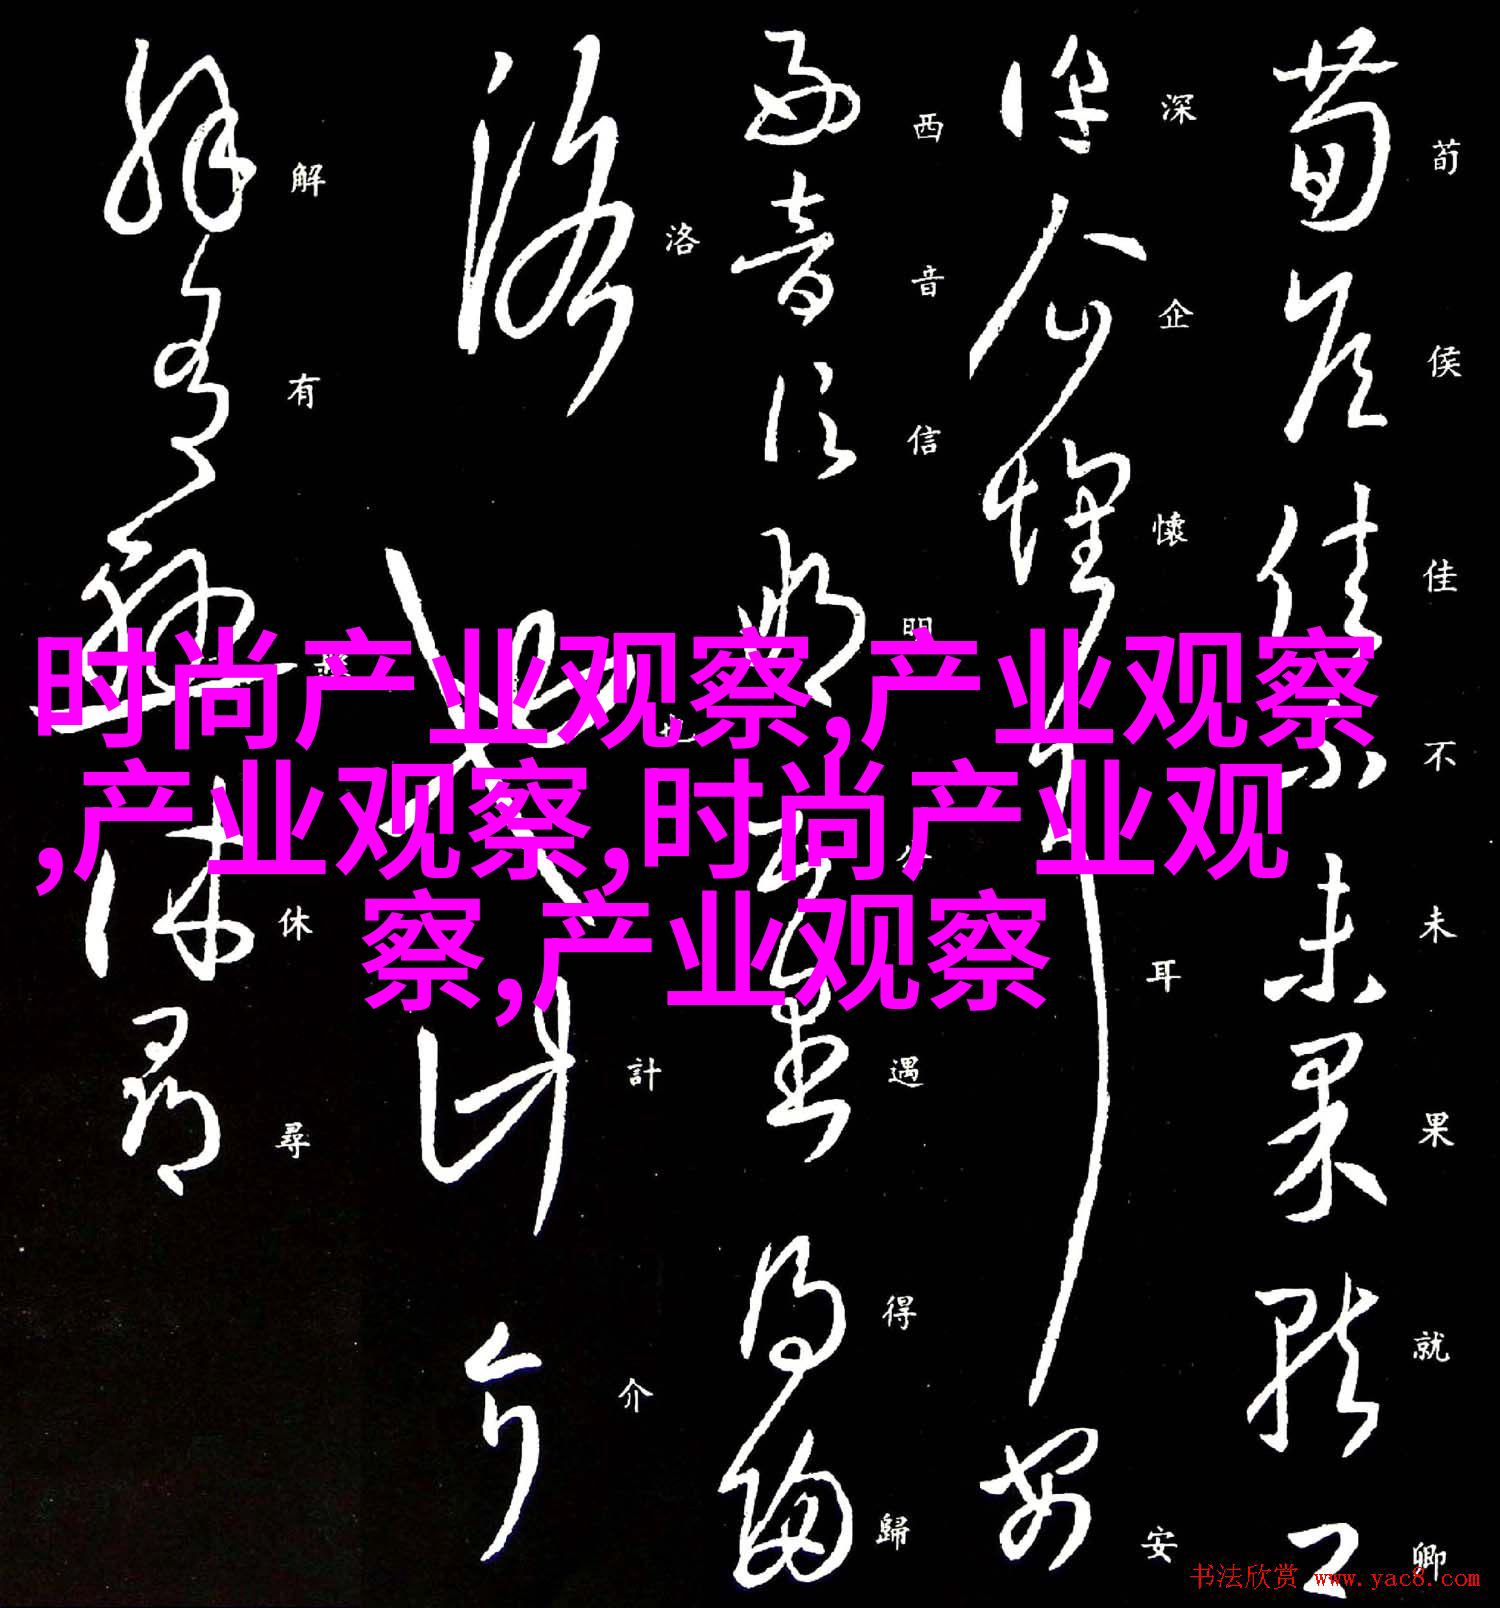 荀侯佳不未果就卿
深企懷耳安
西音信明遇得歸
洛也計介
解有休尋
时尚产业观察,产业观察
,产业观察,时尚产业观
察,产业观察
书法欣赏 www.yac8.com